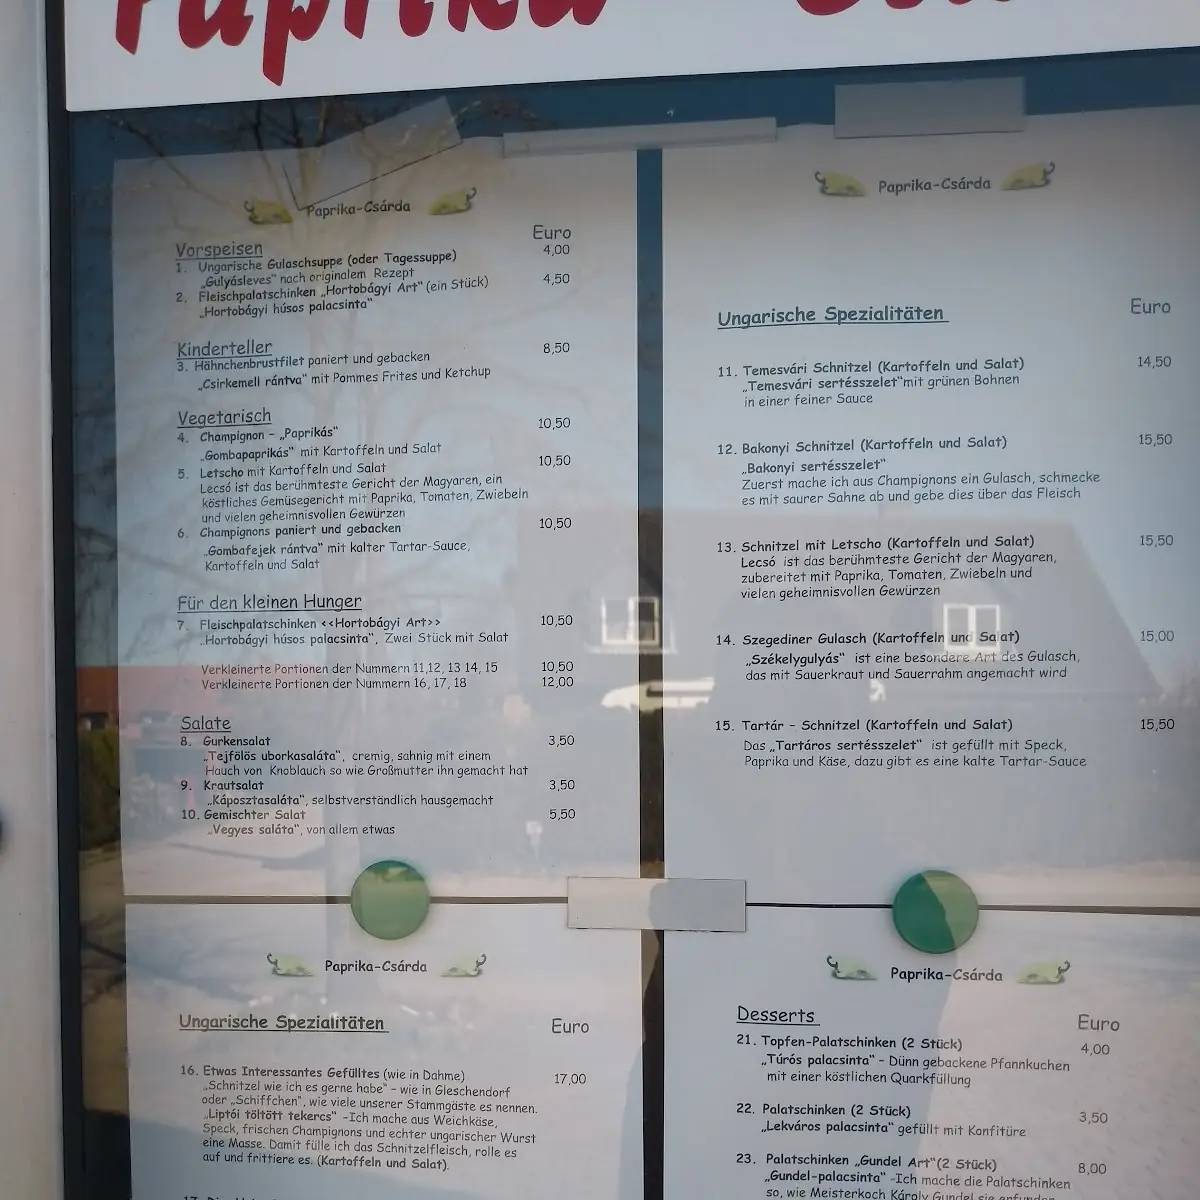 Paprika
Paprika-Csárda
Euro
Vorspeisen
1. Ungarische Gulaschsuppe (oder Tagessuppe) 4,00
„Gulyásleves" nach originalem Rezept
2. Fleischpalatschinken „Hortobágyi Art" (ein Stück) 4,50
„Hortobágyi húsos palacsinta"
Kinderteller
3. Hähnchenbrustfilet paniert und gebacken 8,50
„Csirkemell rántva" mit Pommes Frites und Ketchup
Vegetarisch
4. Champignon – „Paprikás" 10,50
„Gombapaprikás" mit Kartoffeln und Salat
5. Letscho mit Kartoffeln und Salat 10,50
Lecsó ist das berühmteste Gericht der Magyaren, ein
köstliches Gemüsegericht mit Paprika, Tomaten, Zwiebeln
und vielen geheimnisvollen Gewürzen
6. Champignons paniert und gebacken 10,50
„Gombafejek rántva" mit kalter Tartar-Sauce,
Kartoffeln und Salat
Für den kleinen Hunger
7. Fleischpalatschinken <<Hortobágyi Art>> 10,50
„Hortobágyi húsos palacsinta", Zwei Stück mit Salat
Verkleinerte Portionen der Nummern 11,12, 13 14, 15 10,50
Verkleinerte Portionen der Nummern 16, 17, 18 12,00
Salate
8. Gurkensalat 3,50
„Tejfölös uborkasaláta", cremig, sahnig mit einem
Hauch von Knoblauch so wie Großmutter ihn gemacht hat
9. Krautsalat 3,50
„Káposztasaláta", selbstverständlich hausgemacht
10. Gemischter Salat 5,50
„Vegyes saláta", von allem etwas
Paprika-Csárda
Ungarische Spezialitäten Euro
11. Temesvári Schnitzel (Kartoffeln und Salat) 14,50
„Temesvári sertésszelet"mit grünen Bohnen
in einer feiner Sauce
12. Bakonyi Schnitzel (Kartoffeln und Salat) 15,50
„Bakonyi sertésszelet"
Zuerst mache ich aus Champignons ein Gulasch, schmecke
es mit saurer Sahne ab und gebe dies über das Fleisch
13. Schnitzel mit Letscho (Kartoffeln und Salat) 15,50
Lecsó ist das berühmteste Gericht der Magyaren,
zubereitet mit Paprika, Tomaten, Zwiebeln und
vielen geheimnisvollen Gewürzen
14. Szegediner Gulasch (Kartoffeln und Salat) 15,00
„Székelygulyás" ist eine besondere Art des Gulasch,
das mit Sauerkraut und Sauerrahm angemacht wird
15. Tartár – Schnitzel (Kartoffeln und Salat) 15,50
Das „Tartáros sertésszelet" ist gefüllt mit Speck,
Paprika und Käse, dazu gibt es eine kalte Tartar-Sauce
Paprika-Csárda
Ungarische Spezialitäten Euro
16. Etwas Interessantes Gefülltes (wie in Dahme) 17,00
„Schnitzel wie ich es gerne habe" – wie in Gleschendorf
oder „Schiffchen", wie viele unserer Stammgäste es nennen.
„Liptói töltött tekercs" -Ich mache aus Weichkäse,
Speck, frischen Champignons und echter ungarischer Wurst
eine Masse. Damit fülle ich das Schnitzelfleisch, rolle es
auf und frittiere es. (Kartoffeln und Salat).
Paprika-Csárda
Desserts
Euro
21. Topfen-Palatschinken (2 Stück) 4,00
„Túrós palacsinta" – Dünn gebackene Pfannkuchen
mit einer köstlichen Quarkfüllung
22. Palatschinken (2 Stück) 3,50
„Lekváros palacsinta" gefüllt mit Konfitüre
23. Palatschinken „Gundel Art"(2 Stück) 8,00
„Gundel-palacsinta" -Ich mache die Palatschinken
so, wie Meisterkoch Károly Gundel sie